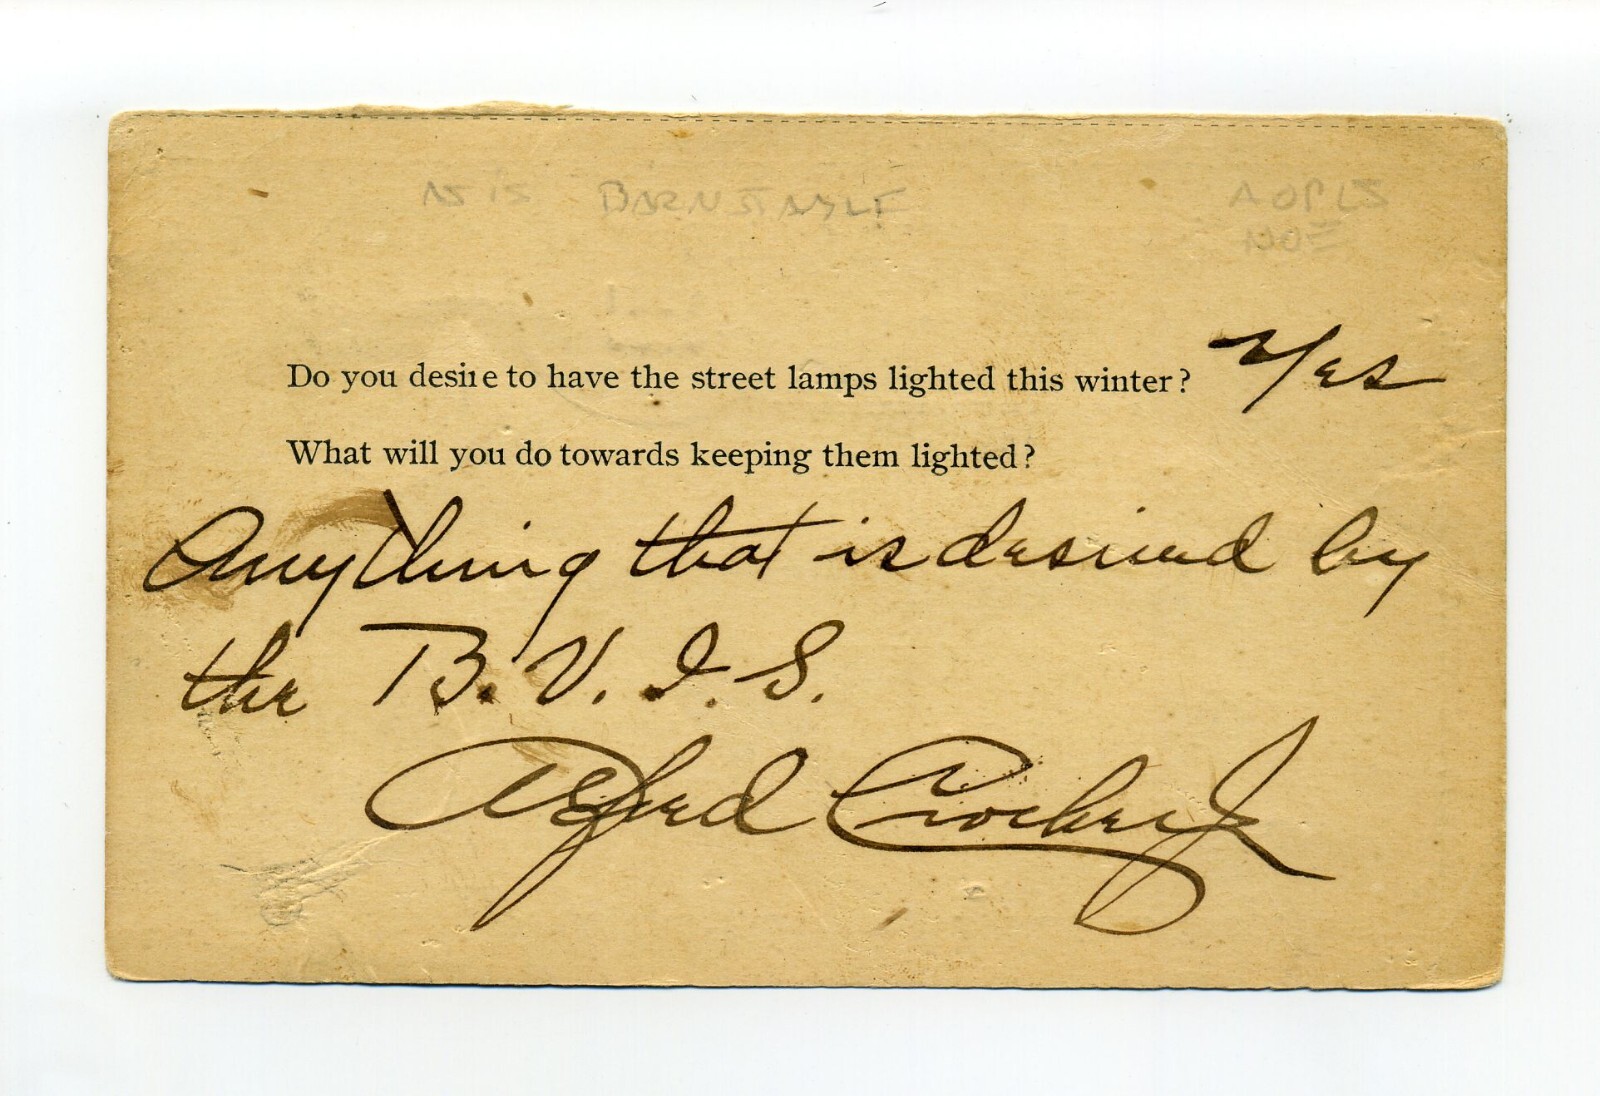 AS IS BARNSTABLE
Do you desire to have the street lamps lighted this winter? Yes
What will you do towards keeping them lighted?
Anything that is desired by
the B. V. I. S.
Alfred Crocker